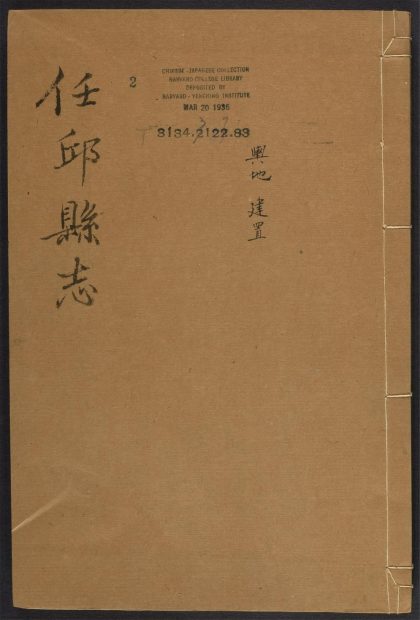 任邱縣志
2
CHINESE-JAPANESE COLLECTION
HARVARD COLLEGE LIBRARY
DEPOSITED BY
HARVARD-YENCHING INSTITUTE
MAR 20 1936
3134.2122.83
輿地 建置